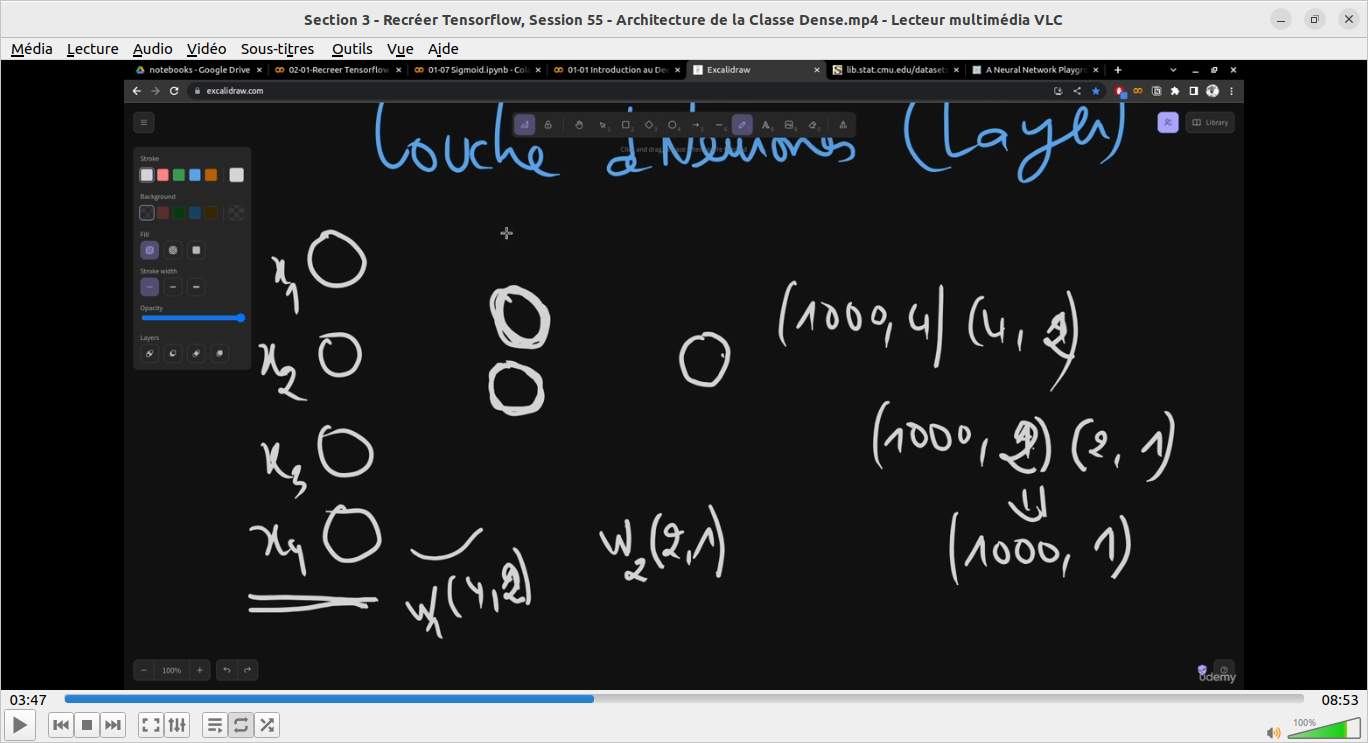 Section 3 - Recréer Tensorflow, Session 55 - Architecture de la Classe Dense.mp4 - Lecteur multimédia VLC
Média Lecture Audio Vidéo Sous-titres Outils Vue Aide
notebooks - Google Drive 02-01-Recreer Tensorflow 01-07 Sigmoid.ipynb - Col 01-01 Introduction au De Excalidraw lib.stat.cmu.edu/datasets A Neural Network Playgro
excalidraw.com
Couche de Neurones (Layer)
Library
Stroke
Background
Fill
Stroke width
Opacity
Layers
x1
x2
x3
x4
(1000, 4) (4, 2)
(1000, 2) (2, 1)
(1000, 1)
W1 (4, 2)
W2 (2, 1)
100%
udemy
03:47 08:53
100%